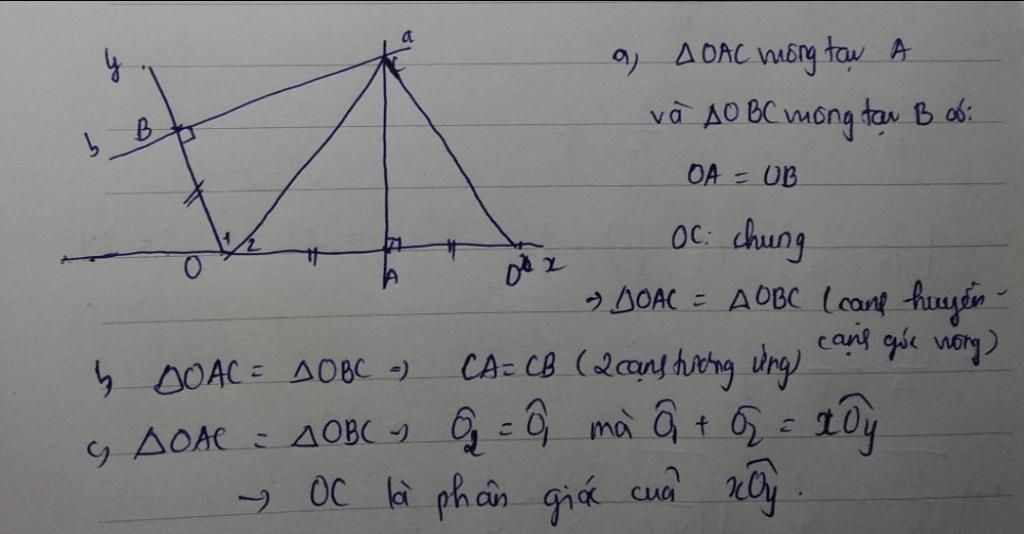 y
a
C
B
b
1
2
O
A
D
x
a, ΔOAC vuông tại A
và ΔOBC vuông tại B có:
OA = OB
OC: chung
→ ΔOAC = ΔOBC (cạnh huyền -
cạnh góc vuông)
b, ΔOAC = ΔOBC => CA = CB (2 cạnh tương ứng)
c, ΔOAC = ΔOBC → Ô₂ = Ô₁ mà Ô₁ + Ô₂ = xÔy
→ OC là phân giác cuả xÔy.